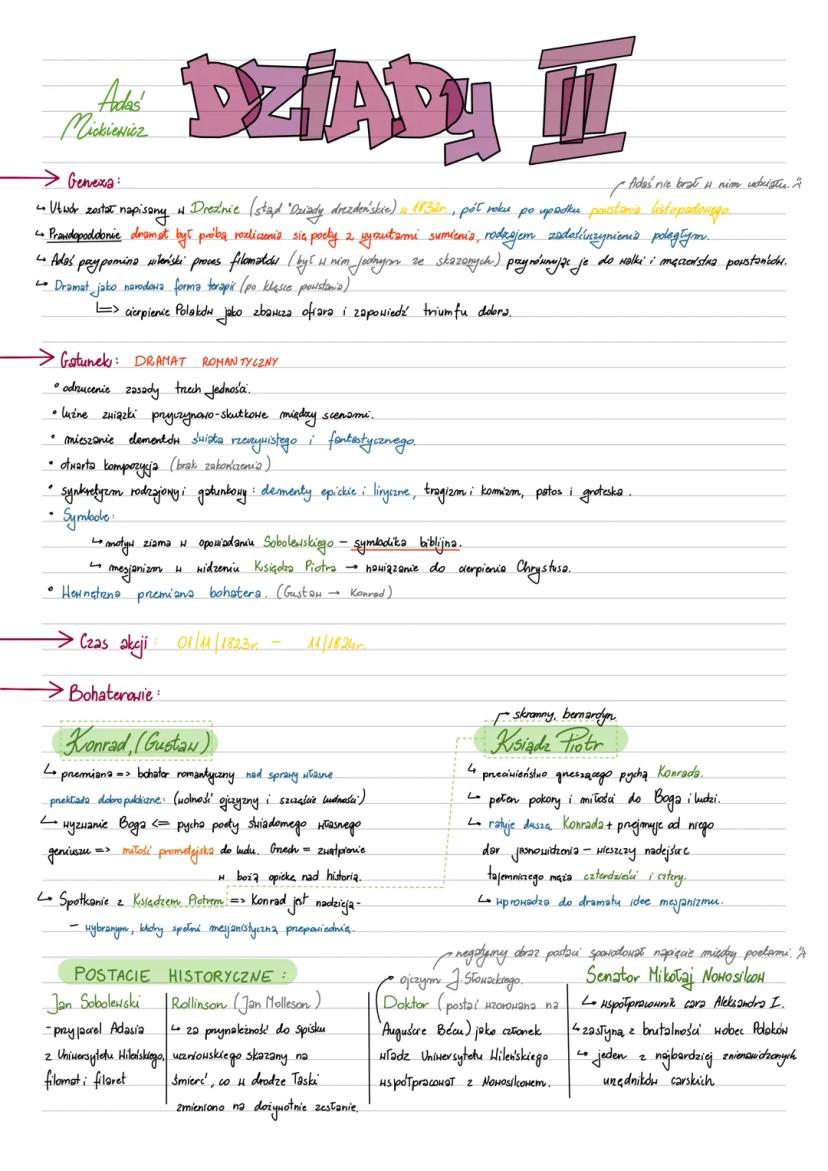 DZIADY III
Adaś
Mickiewicz
Geneza:
Adaś nie brał w nim udziału.
↳ Utwór został napisany w Dreźnie (stąd "Dziady drezdeńskie) w 1832r., pół roku po upadku powstania listopadowego.
↳ Prawdopodobnie dramat był próbą rozliczenia się poety z wyrzutami sumienia, rodzajem zadośćuczynienia poległym.
↳ Adaś przypomina wileński proces filomatów (był w nim jednym ze skazanych) przyrównując je do walki i męczeństwa powstańców.
↳ Dramat jako narodowa forma terapii (po klęsce powstania)
↳ cierpienie Polaków jako zbawcza ofiara i zapowiedź triumfu dobra.
Gatunek: DRAMAT ROMANTYCZNY
° odrzucenie zasady trzech jedności.
° luźne związki przyczynowo-skutkowe między scenami.
° mieszanie elementów świata rzeczywistego i fantastycznego.
° otwarta kompozycja (brak zakończenia)
° synkretyzm rodzajowy i gatunkowy: elementy epickie i liryczne, tragizm i komizm, patos i groteska.
° Symbole:
↳ motyw ziarna w opowiadaniu Sobolewskiego – symbolika biblijna.
↳ mesjanizm w widzeniu Księdza Piotra → nawiązanie do cierpienia Chrystusa.
° Wewnętrzna przemiana bohatera. (Gustaw → Konrad)
Czas akcji: 01/11/1823r. – 11/1824r.
Bohaterowie:
Konrad, (Gustaw)
↳ przemiana => bohater romantyczny nad sprawy własne
przekłada dobro publiczne: (wolność ojczyzny i szczęście ludności)
↳ wyzwanie Boga <= pycha poety świadomego własnego
geniuszu => miłość prometejska do ludu. Grzech = zwątpienie
w bożą opiekę nad historią.
↳ Spotkanie z Księdzem Piotrem => Konrad jest nadzieją-
– wybranym, który spełni mesjanistyczną przepowiednię.
skromny, bernardyn
Ksiądz Piotr
↳ przeciwieństwo grzeszącego pychą Konrada.
↳ pełen pokory i miłości do Boga i ludzi.
↳ ratuje duszę Konrada + przejmuje od niego
dar jasnowidzenia – wieszczy nadejście
tajemniczego męża czterdzieści i cztery.
↳ wprowadza do dramatu idee mesjanizmu.
POSTACIE HISTORYCZNE:
Jan Sobolewski
- przyjaciel Adasia
z Uniwersytetu Wileńskiego,
filomat i filaret
Rollinson (Jan Molleson)
↳ za przynależność do spisku
uczniowskiego skazany na
śmierć, co w drodze łaski
zmieniono na dożywotnie zesłanie.
negatywny obraz postaci spowodował napięcie między poetami.
ojczym J. Słowackiego.
Doktor (postać wzorowana na
Auguście Bécu) jako członek
władz Uniwersytetu Wileńskiego
współpracował z Nowosilcowem.
Senator Mikołaj Nowosilcow
↳ współpracownik cara Aleksandra I.
↳ zasłyną z brutalności wobec Polaków
↳ jeden z najbardziej znienawidzonych
urzędników carskich